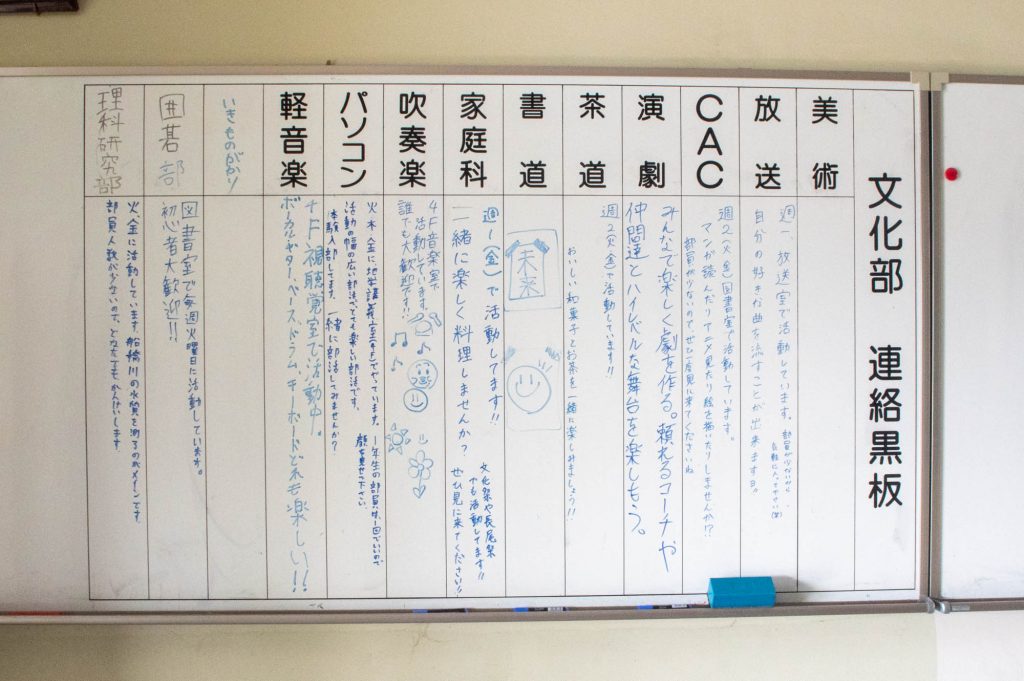 文化部 連絡黒板
美術
放送
週一、放送室で活動しています。
自分の好きな曲を流すことが出来ます。
部員が少ないから
CAC
週2(火、金)図書室で活動しています。
マンガ読んだりアニメ見たり絵を描いたりしませんか!?
部員が少ないので、ぜひ一度見に来てくださいね
演劇
みんなで楽しく劇を作る。頼れるコーチや
仲間達とハイレベルな舞台を楽しもう。
茶道
週2(火、金)で活動しています!!
おいしい和菓子とお茶を一緒に楽しみましょう!!
書道
未来
家庭科
週1(金)で活動してます!!
一緒に楽しく料理しませんか?
文化祭や長尾祭
でも活動してます!!
ぜひ見に来てください!!
吹奏楽
4F音楽室で
活動しています。
誰でも大歓迎です!!
パソコン
火木金に地学講義室(4F)でやっています。
活動の幅の広い部活でとても楽しい部活です。
体験入部してます。一緒に部活してみませんか?
1年生の部員は、1回でいいので
顔を見せて下さい
軽音楽
4F視聴覚室で活動中。
ボーカル、ギター、ベース、ドラム、キーボードどれも楽しい!!
いきものがかり
囲碁部
図書室で毎週火曜日に活動しています。
初心者大歓迎!!
理科研究部
火、金に活動しています。船橋川の水質を測るのがメインです。
部員人数が少ないので、どなたでもかんげいします